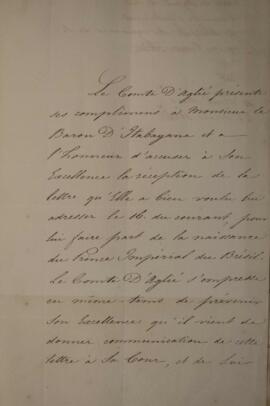 Le Comte D'Aglié présente
ses complimens à Monsieur le
Baron D'Itabayana et a
l'honneur d'accuser à Son
Excellence la réception de la
lettre qu'Elle a bien voulu lui
adresser le 16 du courant pour
lui faire part de la naissance
du Prince Impérial du Brésil.
Le Comte D'Aglié s'empresse
en même tems de prévenir
Son Excellence qu'il vient de
donner communication de cette
lettre à Sa Cour, et de Lui